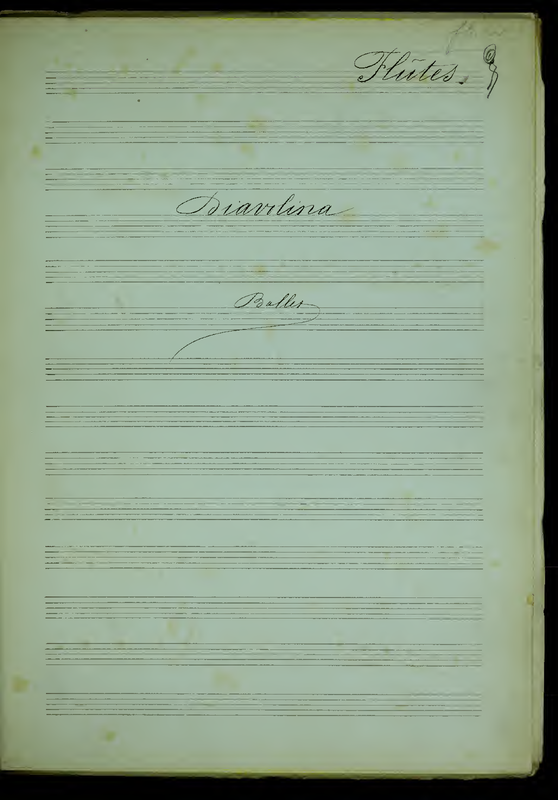 Flûtes.
Diavolina
Ballet